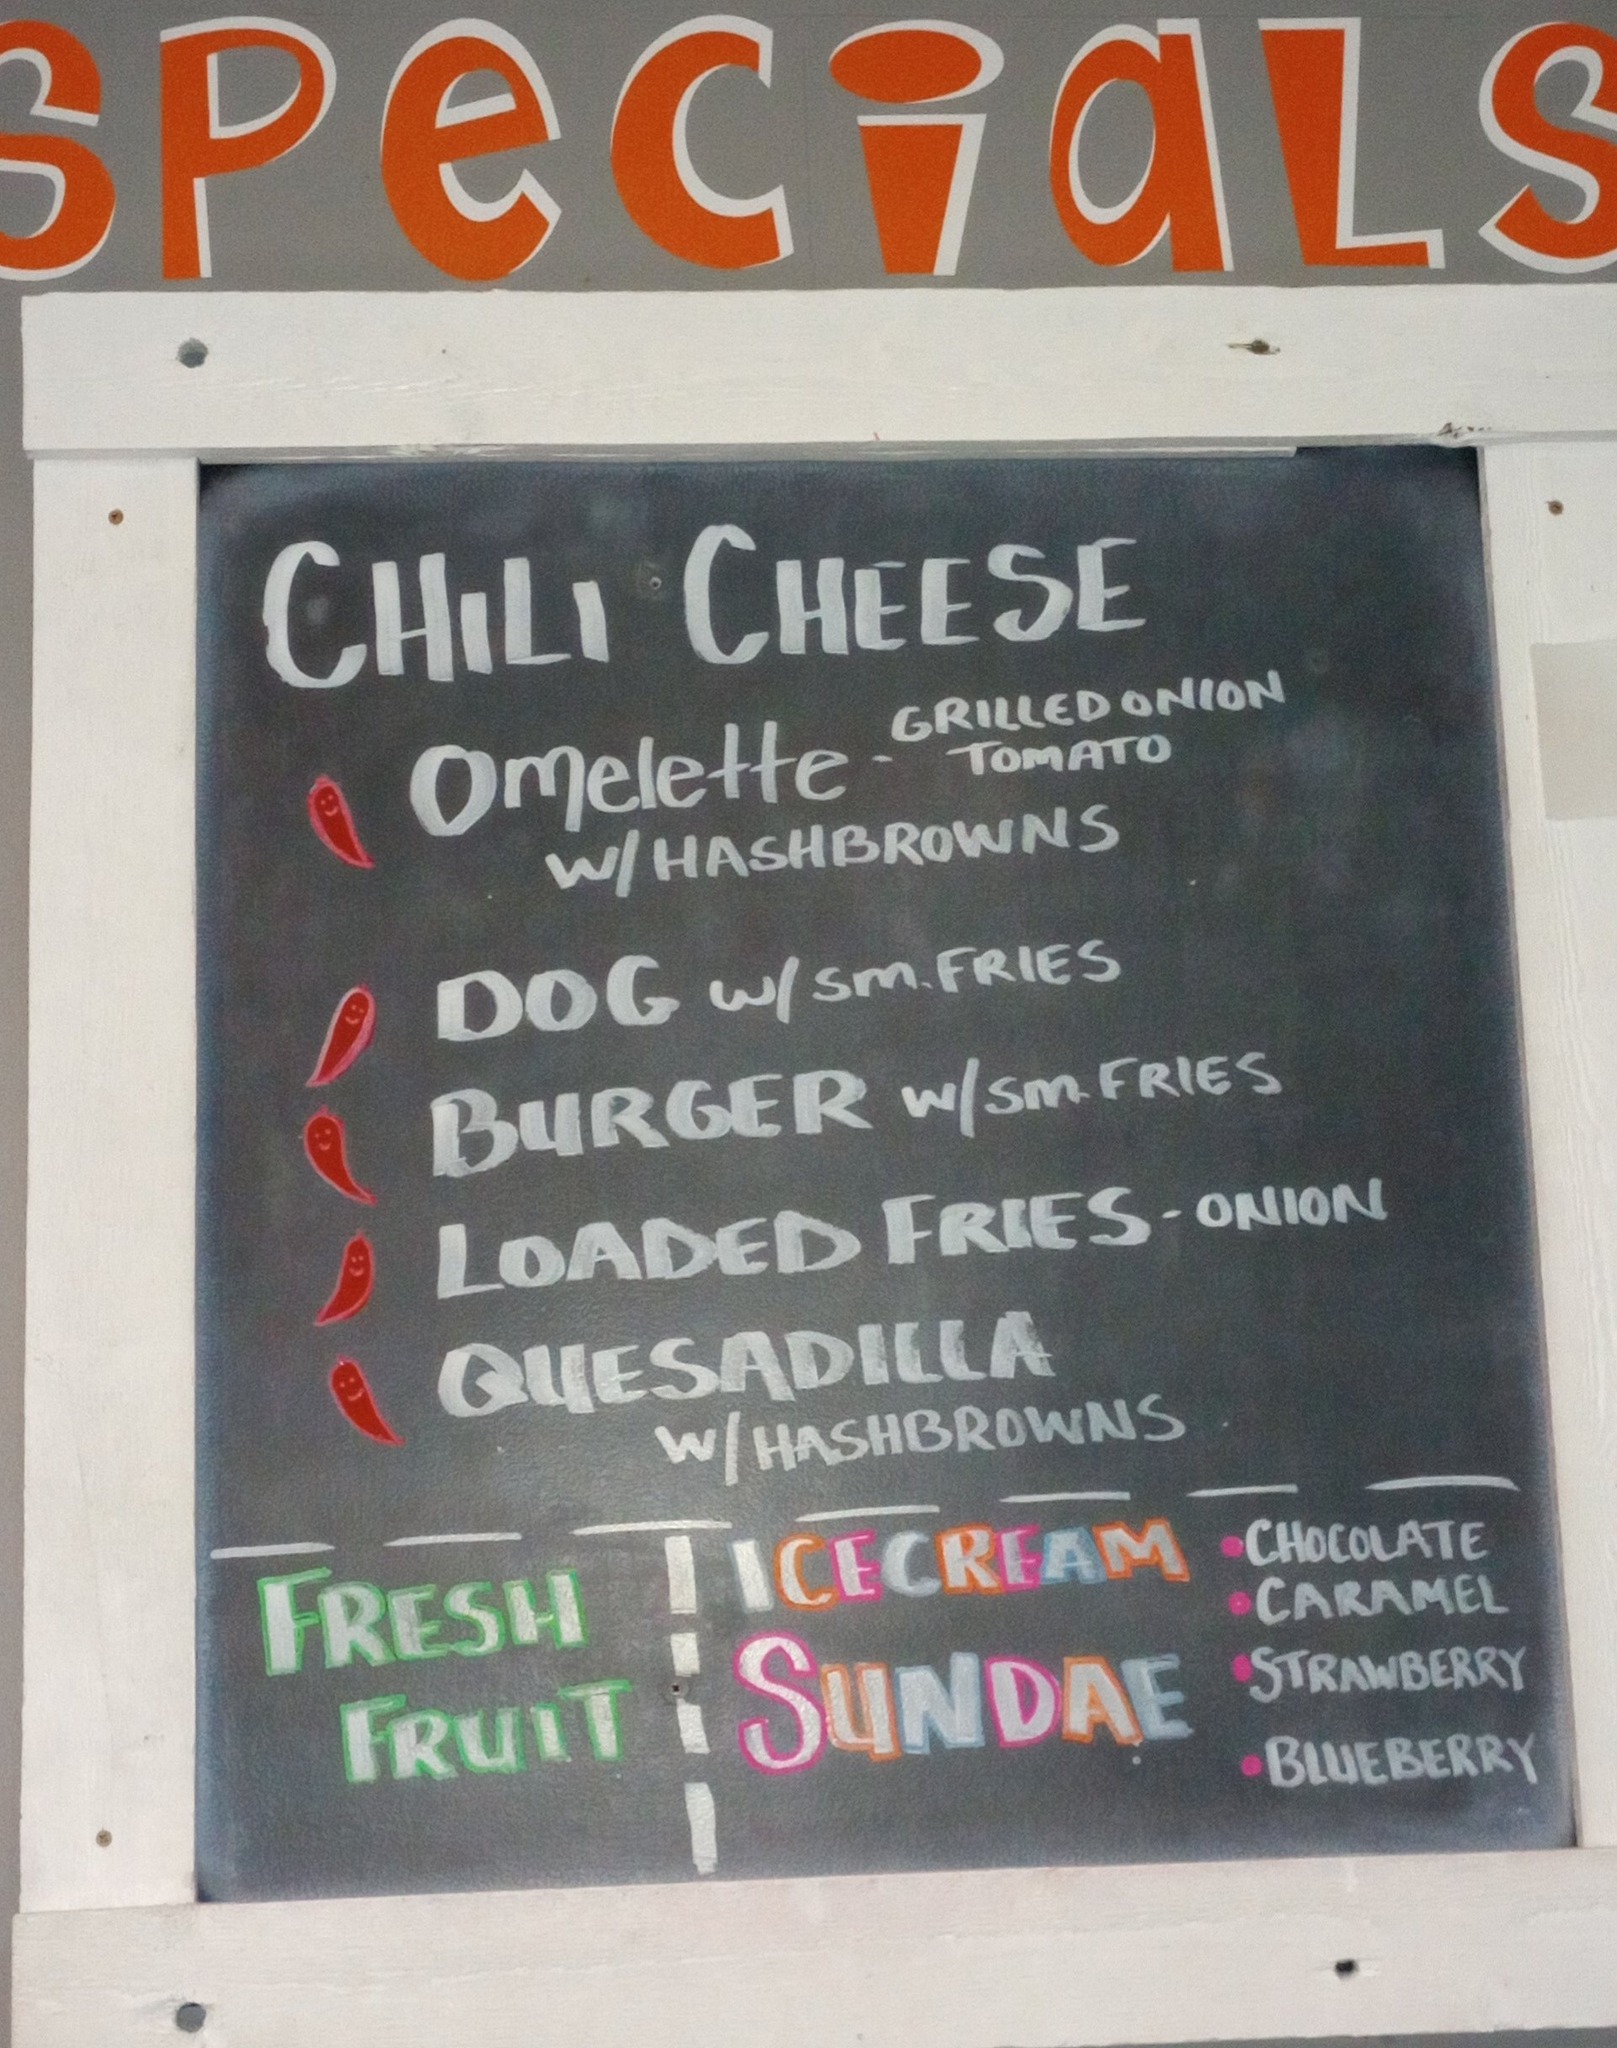 SPeCiaLS
CHILI CHEESE
Omelette - GRILLED ONION
TOMATO
W/HASHBROWNS
DOG w/sm. FRIES
BURGER w/sm. FRIES
LOADED FRIES - ONION
QUESADILLA
W/HASHBROWNS
FRESH
FRUIT
ICECREAM
SUNDAE
• CHOCOLATE
• CARAMEL
• STRAWBERRY
• BLUEBERRY